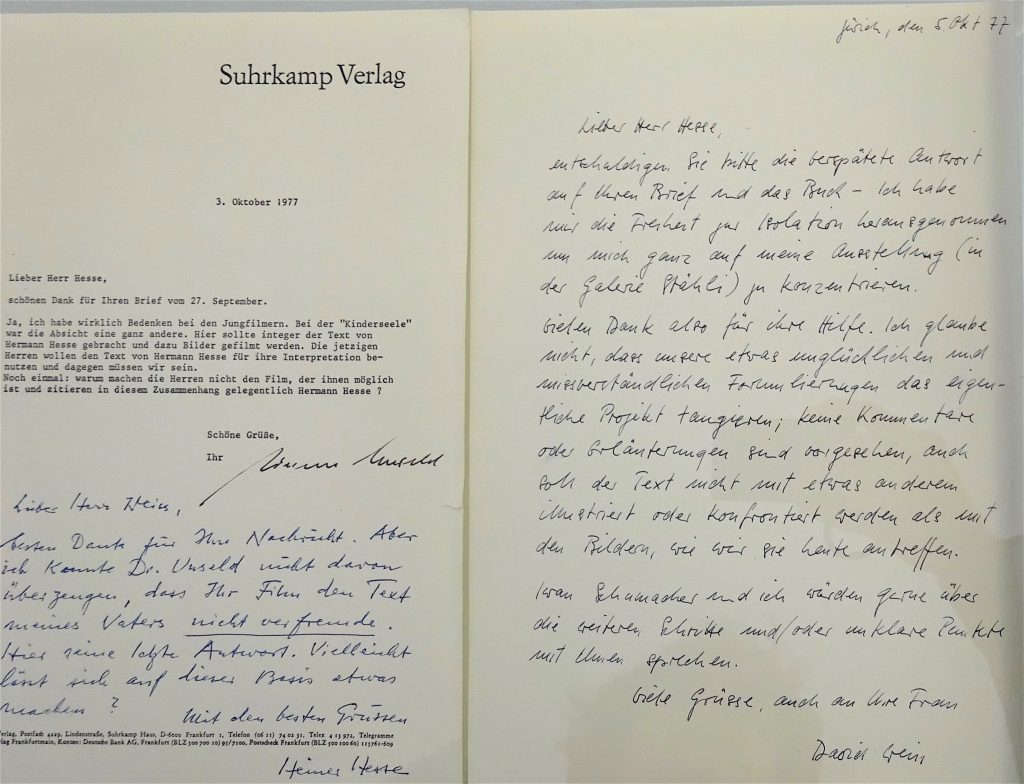 Suhrkamp Verlag
3. Oktober 1977
Lieber Herr Hesse,
schönen Dank für Ihren Brief vom 27. September.
Ja, ich habe wirklich Bedenken bei den Jungfilmern. Bei der "Kinderseele"
war die Absicht eine ganz andere. Hier sollte integer der Text von
Hermann Hesse gebracht und dazu Bilder gefilmt werden. Die jetzigen
Herren wollen den Text von Hermann Hesse für ihre Interpretation be-
nutzen und dagegen müssen wir sein.
Noch einmal: warum machen die Herren nicht den Film, der ihnen möglich
ist und zitieren in diesem Zusammenhang gelegentlich Hermann Hesse ?
Schöne Grüße,
Ihr
Lieber Herr Weiss,
besten Dank für Ihre Nachricht. Aber
ich konnte Dr. Unseld nicht davon
überzeugen, dass Ihr Film den Text
meines Vaters nicht verfremde.
Hier seine letzte Antwort. Vielleicht
lässt sich auf dieser Basis etwas
machen ?
Mit den besten Grüssen
Verlag, Postfach 4229, Lindenstraße, Suhrkamp Haus, D-6000 Frankfurt 1, Telefon (06 11) 74 02 31, Telex 4 13 972, Telegramme
Frankfurtmain, Konten: Deutsche Bank AG, Frankfurt (BLZ 500 700 10) 95/7100, Postscheck Frankfurt (BLZ 500 100 60) 115761-609
Heiner Hesse
Zürich, den 5. Okt 77
Lieber Herr Hesse,
entschuldigen Sie bitte die verspätete Antwort
auf Ihren Brief und das Buch – Ich habe
mir die Freiheit zur Isolation herausgenommen
um mich ganz auf meine Ausstellung (in
der Galerie Stähli) zu konzentrieren.
Vielen Dank also für ihre Hilfe. Ich glaube
nicht, dass unsere etwas unglücklichen und
missverständlichen Formulierungen das eigen-
tliche Projekt tangieren; keine Kommentare
oder Erläuterungen sind vorgesehen, auch
soll der Text nicht mit etwas anderem
illustriert oder konfrontiert werden als mit
den Bildern, wie wir sie heute antreffen.
Iwan Schumacher und ich würden gerne über
die weiteren Schritte und/oder unklare Punkte
mit Ihnen sprechen.
Viele Grüsse, auch an Ihre Frau
David Weiss